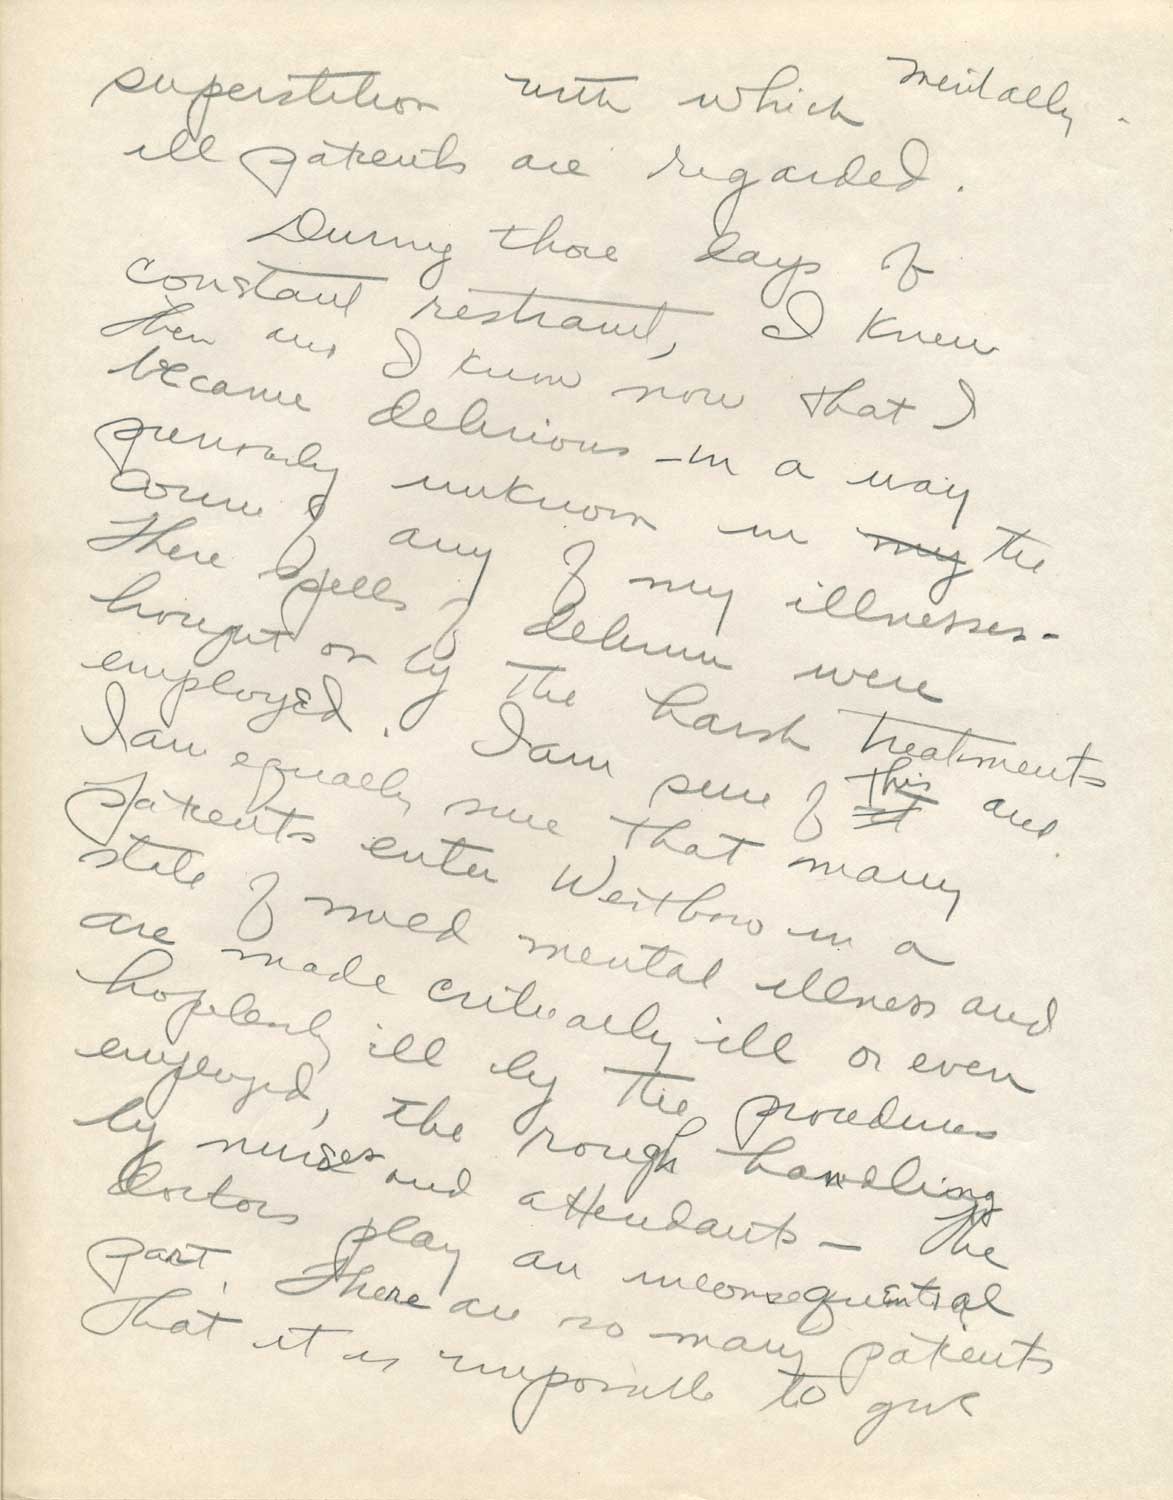 superstition with which mentally
ill patients are regarded.
During those days of
constant restraint, I knew
then and I know now that I
became delirious - in a way
previously unknown in my the
course of any of my illnesses -
These spells of delirium were
brought on by the harsh treatments
employed. I am sure of it this and
I am equally sure that many
patients enter Westboro in a
state of mild mental illness and
are made critically ill or even
hoplessly ill by the procedures
employed, the rough handling
by nurses and attendants - The
doctors play an inconsequential
part. There are so many patients
that it is impossible to give